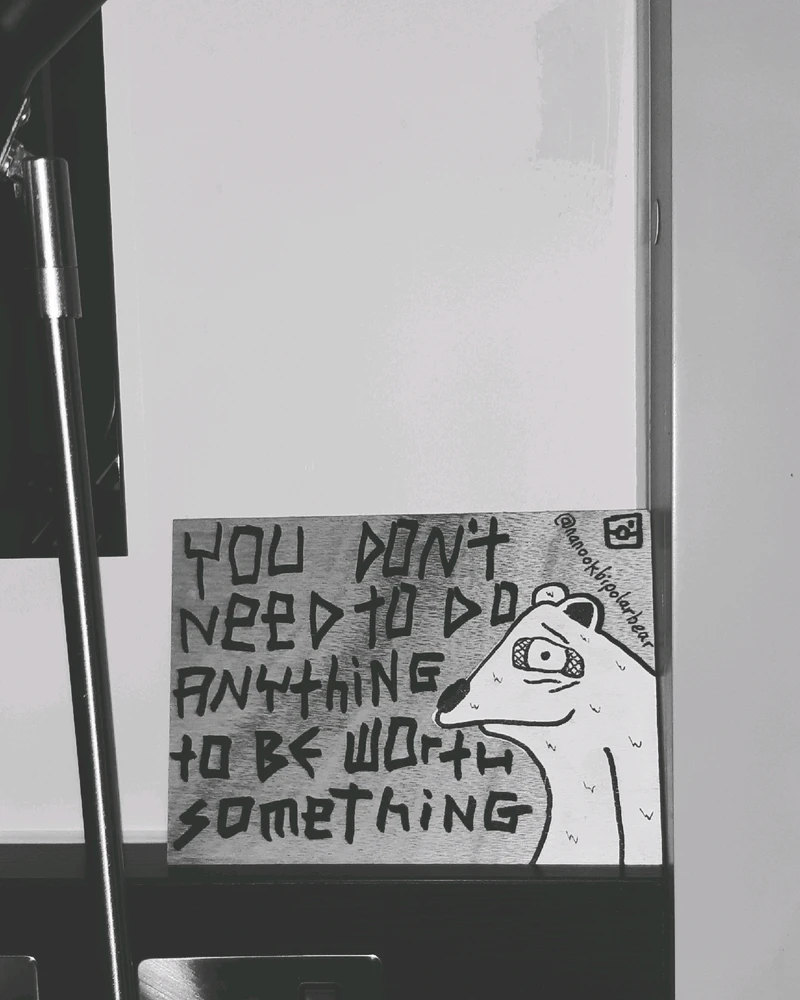 YOU DON't
NEED to DO
ANYthiNG
to BE WOrtH
someThiNG
@nanookbipolarbear